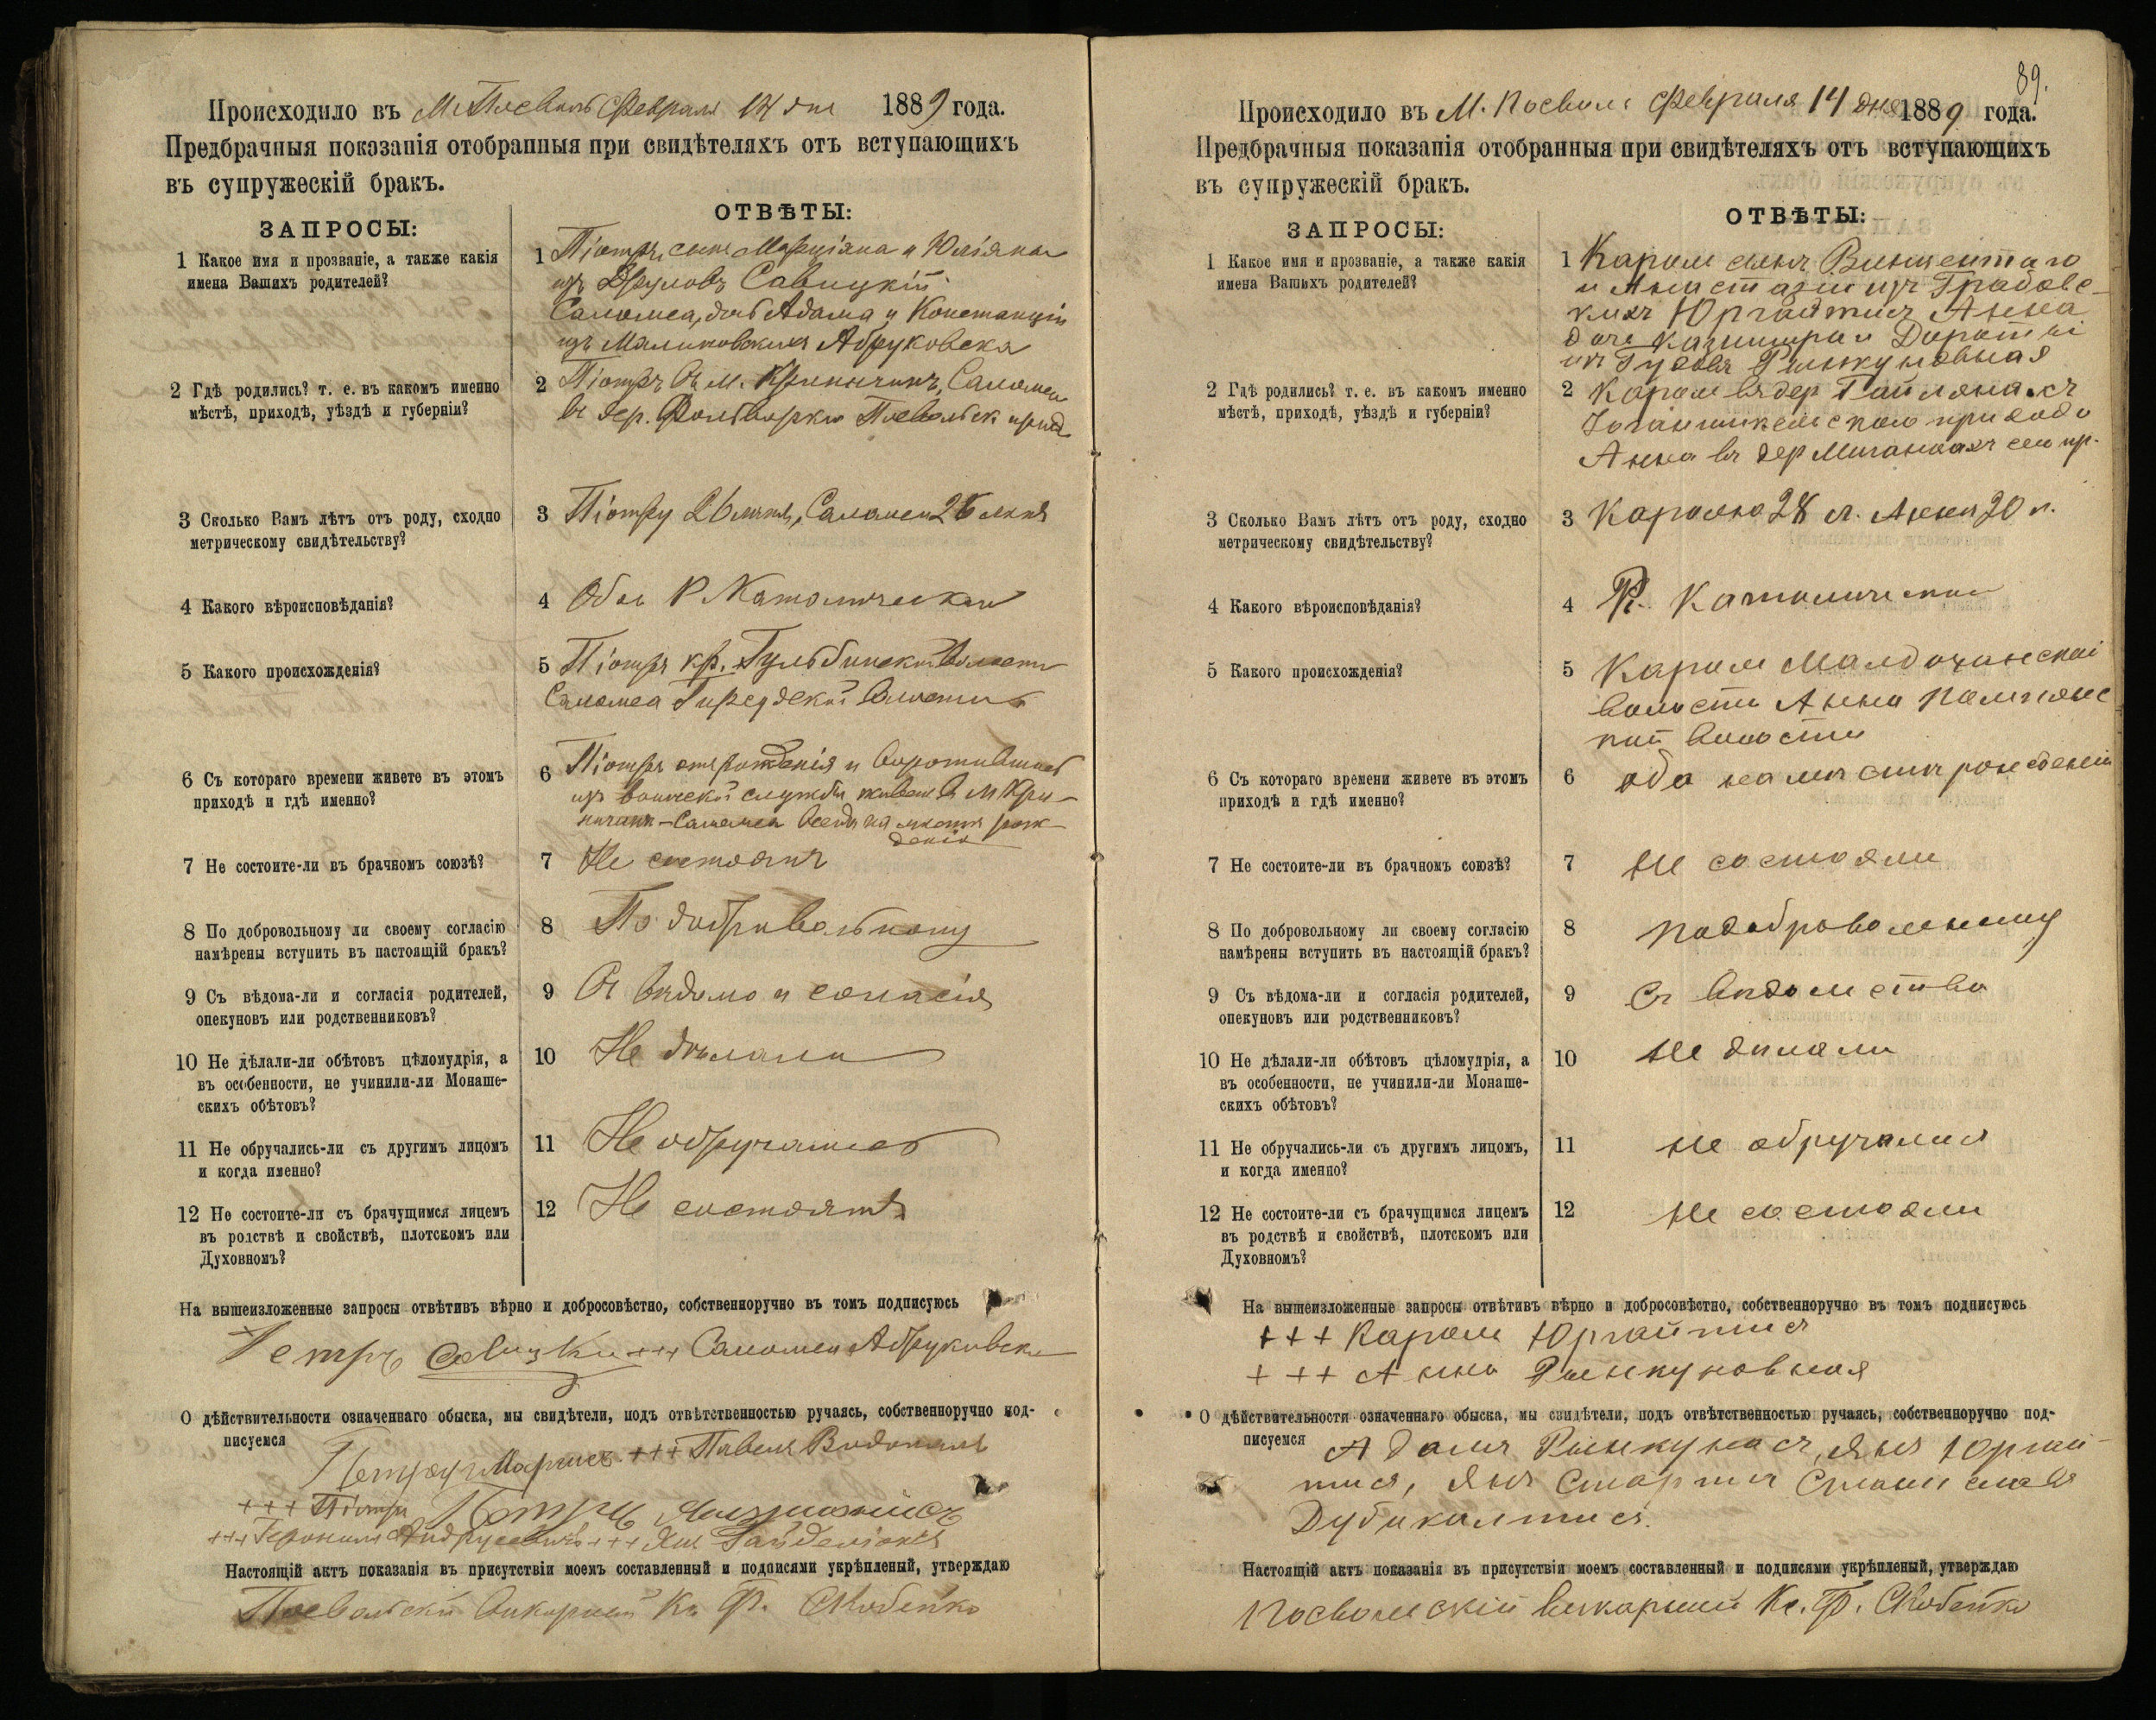 Происходило въ М. Посволь Февраля 14 дня 1889 года.
Предбрачныя показанія отобранныя при свидѣтеляхъ отъ вступающихъ
въ супружескій бракъ.
ЗАПРОСЫ:
ОТВѢТЫ:
1 Какое имя и прозваніе, а также какія
имена Вашихъ родителей?
1 Піотръ, сынъ Марціяна и Юліяны
изъ Савицкій
Саломеа, дочь Адама и Констанціи
изъ Малиновскихъ Абруковска
2 Гдѣ родились? т. е. въ какомъ именно
мѣстѣ, приходѣ, уѣздѣ и губерніи?
2 Піотръ въ м. Криничинъ, Саломеа
въ дер. Фольваркю Посвольск. прих.
3 Сколько Вамъ лѣтъ отъ роду, сходно
метрическому свидѣтельству?
3 Піотру 26 лѣтъ, Саломеи 26 лѣтъ
4 Какого вѣроисповѣданія?
4 Обоє Р Католическаго
5 Какого происхожденія?
5 Піотръ кр. Гульбинской Волости
Саломеа Гиредской Волости
6 Съ котораго времени живете въ этомъ
приходѣ и гдѣ именно?
6 Піотръ отъ рожденія и воротившись
изъ воинской службы живетъ въ м Кри-
ничинъ - Саломеа всегда на мѣстѣ рож-
денія
7 Не состоите-ли въ брачномъ союзѣ?
7 Не состоятъ
8 По добровольному ли своему согласію
намѣрены вступить въ настоящій бракъ?
8 По добровольному
9 Съ вѣдома-ли и согласія родителей,
опекуновъ или родственниковъ?
9 Съ вѣдома и согласія
10 Не дѣлали-ли обѣтовъ цѣломудрія, а
въ особенности, не учинили-ли Монаше-
скихъ обѣтовъ?
10 Не дѣлали
11 Не обручались-ли съ другимъ лицомъ
и когда именно?
11 Не обручались
12 Не состоите-ли съ брачущимся лицемъ
въ родствѣ и свойствѣ, плотскомъ или
Духовномъ?
12 Не состоятъ
На вышеизложенные запросы отвѣтивъ вѣрно и добросовѣстно, собственноручно въ томъ подписуюсь
Петръ Савицки +++ Саломеа Абруковска
О дѣйствительности означеннаго обыска, мы свидѣтели, подъ отвѣтственностью ручаясь, собственноручно под-
писуемся
+++ Павелъ
+++ Піотръ Петръ
+++ Геронимъ Андрусевичъ +++ Янъ
Настоящій актъ показанія въ присутствіи моемъ составленный и подписями укрѣпленый, утверждаю
Посвольскій Викарный Кс. Ф. Скобейко
89.
Происходило въ М. Посволь Февраля 14 дня 1889 года.
Предбрачныя показанія отобранныя при свидѣтеляхъ отъ вступающихъ
въ супружескій бракъ.
ЗАПРОСЫ:
ОТВѢТЫ:
1 Какое имя и прозваніе, а также какія
имена Вашихъ родителей?
1 Кароль сынъ Винцентаго
и Анастазіи изъ Градовс-
кихъ Юргайтисъ Анна
дочь Казимира и Доротеи
изъ Гудовъ Ринкуновная
2 Гдѣ родились? т. е. въ какомъ именно
мѣстѣ, приходѣ, уѣздѣ и губерніи?
2 Кароль въ дер
Іоганишкельскаго прихода
Анна въ дер Миганцахъ сего пр.
3 Сколько Вамъ лѣтъ отъ роду, сходно
метрическому свидѣтельству?
3 Каролю 28 л. Анна 20 л.
4 Какого вѣроисповѣданія?
4 Р. Католическаго
5 Какого происхожденія?
5 Кароль
волости Анна
кой волости
6 Съ котораго времени живете въ этомъ
приходѣ и гдѣ именно?
6 оба на мѣстѣ рожденія
7 Не состоите-ли въ брачномъ союзѣ?
7 Не состояли
8 По добровольному ли своему согласію
намѣрены вступить въ настоящій бракъ?
8 подобровольному
9 Съ вѣдома-ли и согласія родителей,
опекуновъ или родственниковъ?
9 Съ вѣдомства
10 Не дѣлали-ли обѣтовъ цѣломудрія, а
въ особенности, не учинили-ли Монаше-
скихъ обѣтовъ?
10 Не дѣлали
11 Не обручались-ли съ другимъ лицомъ,
и когда именно?
11 не обручались
12 Не состоите-ли съ брачущимся лицемъ
въ родствѣ и свойствѣ, плотскомъ или
Духовномъ?
12 Не состояли
На вышеизложенные запросы отвѣтивъ вѣрно и добросовѣстно, собственноручно въ томъ подписуюсь
+++ Кароль Юргайтисъ
+++ Анна Ринкуновная
О дѣйствительности означеннаго обыска, мы свидѣтели, подъ отвѣтственностью ручаясь, собственноручно под-
писуемся Адамъ Ринкунасъ, Янъ Юргай-
тисъ, Янъ Станиславъ
Настоящій актъ показанія въ присутствіи моемъ составленный и подписями укрѣпленый, утверждаю
Посвольскій Викарный Кс. Ф. Скобейко